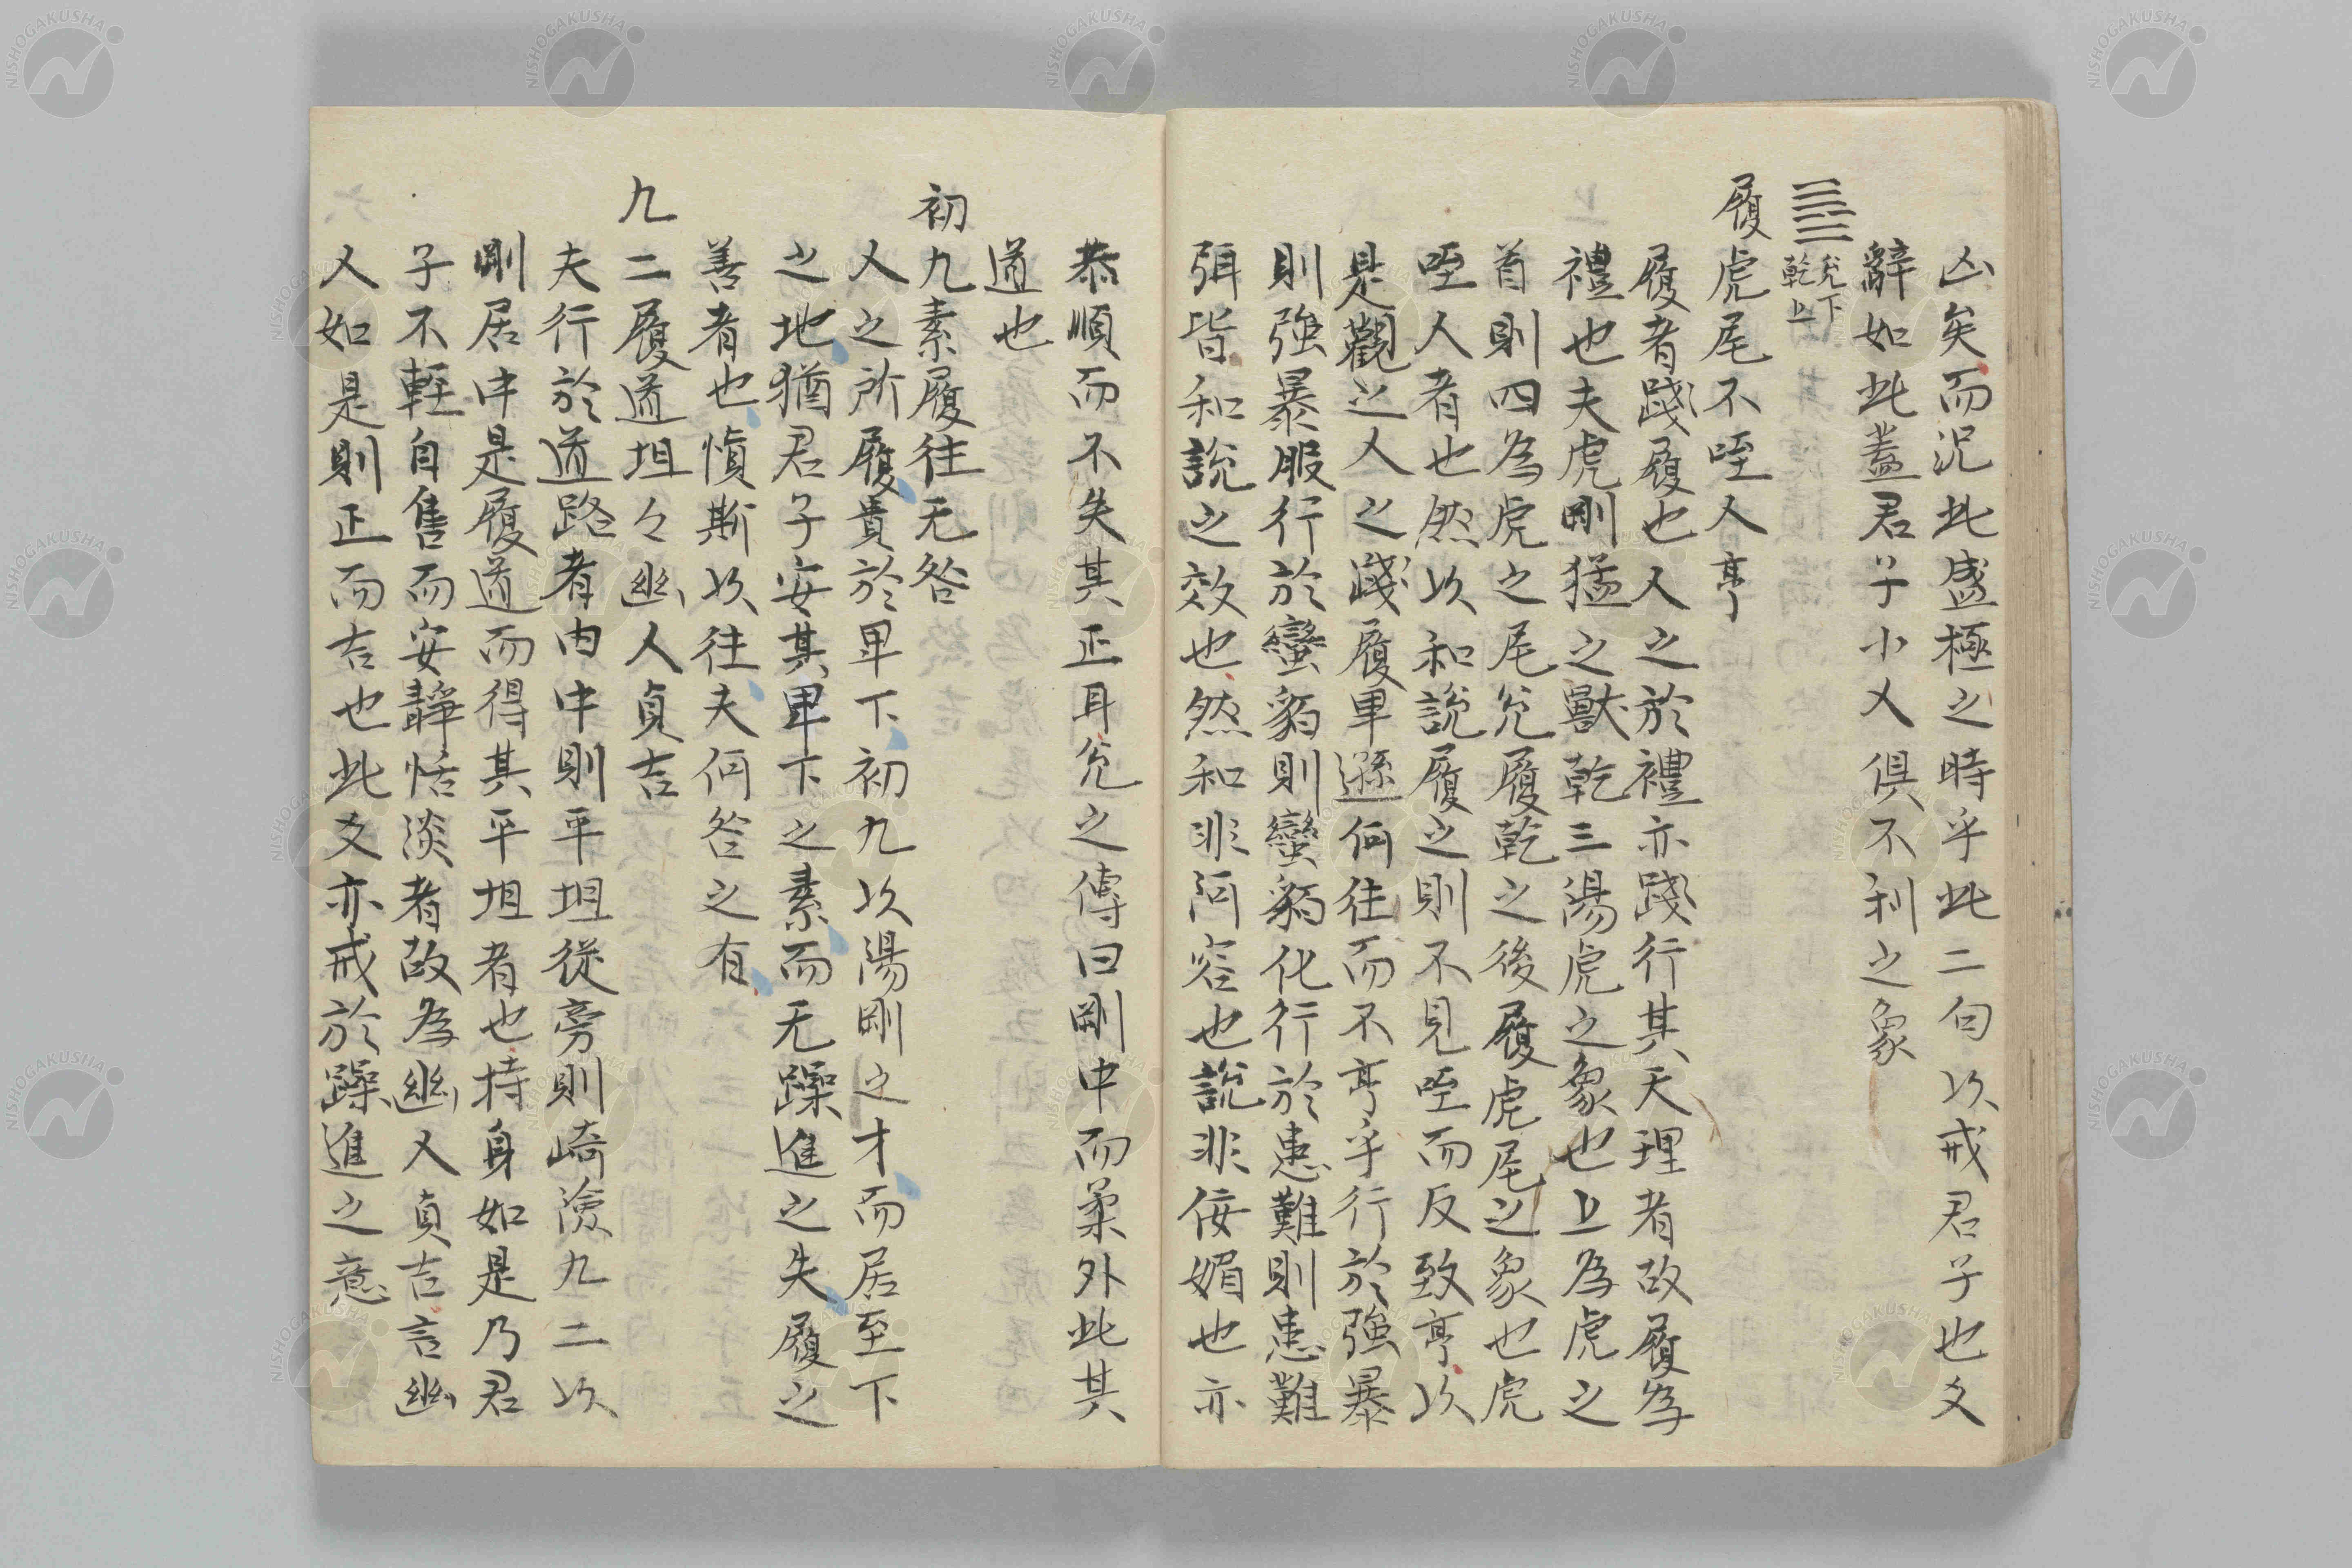 凶矣而况此盛極之時乎此二句以戒君子也爻
辭如此蓋君子小人俱不利之象
兌下
乾上
履虎尾不咥人亨
履者踐履也人之於禮亦踐行其天理者故履爲
禮也夫虎剛猛之獸乾三陽虎之象也上為虎之
首則四為虎之尾兌履乾之後履虎尾之象也虎
咥人者也然以和說履之則不見咥而反致亨以
是觀之人之踐履卑遜何往而不亨乎行於強暴
則強暴服行於蠻貊則蠻貊化行於患難則患難
弭皆和說之效也然和非阿容也說非佞媚也亦
恭順而不失其正耳兌之傳曰剛中而柔外此其
道也
初九素履往无咎
人之所履貴於卑下初九以陽剛之才而居至下
之地猶君子安其卑下之素而无躁進之失履之
善者也慎斯以往夫何咎之有
九二履道坦々幽人貞吉
夫行於道路者由中則平坦從旁則崎嶮九二以
剛居中是履道而得其平坦者也持身如是乃君
子不輕自售而安靜恬淡者故為幽人貞吉言幽
人如是則正而吉也此爻亦戒於躁進之意
NISHOGAKUSHA